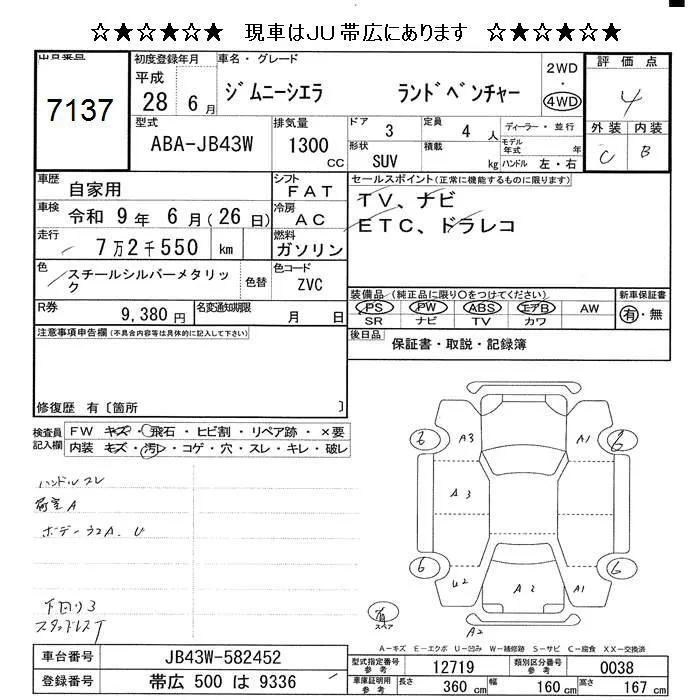 ☆★☆★☆ 現車はJU帯広にあります ☆★☆★☆
出品番号
7137
初度登録年月
平成
28 年 6 月
車名・グレード
ジムニーシエラ ランドベンチャー
2WD
・
4WD
評価点
4
外装 内装
C B
型式
ABA-JB43W
排気量
1300
CC
ドア
3
定員
4 人
形状
SUV
積載
kg
ディーラー・並行
モデル年式 年
ハンドル 左・右
車歴
自家用
シフト
FAT
車検
令和 9 年 6 月(26日)
冷房
AC
走行
7万2千550 km
燃料
ガソリン
色
スチールシルバーメタリック
色替
色コード
ZVC
R券
9,380円
名変通知期限
月 日
セールスポイント(正常に機能するものに限ります)
TV、ナビ
ETC、ドラレコ
装備品(純正品に限り○をつけてください)
PS PW ABS エアB AW
SR ナビ TV カワ
新車保証書
有・無
後日品
保証書・取説・記録簿
注意事項申告欄(不具合内容等は具体的に記入して下さい)
修復歴 有〔箇所 〕
検査員記入欄
FW キズ・飛石・ヒビ割・リペア跡・×要
内装 キズ・汚レ・コゲ・穴・スレ・キレ・破レ
ハンドルスレ
荷室A
ボデーララA、U
下回り3
スタッドレスT
6 A3 A1 6
A3
6 U2 A2 A1 6
A2
有
スペア
A-キズ E-エクボ U-凹み W-補修跡 S-サビ C-腐食 XX-交換済
車台番号
JB43W-582452
登録番号
帯広 500 は 9336
型式指定番号
参考
12719
類別区分番号
参考
0038
車庫証明用
参考
長さ 360 cm
幅 160 cm
高さ 167 cm